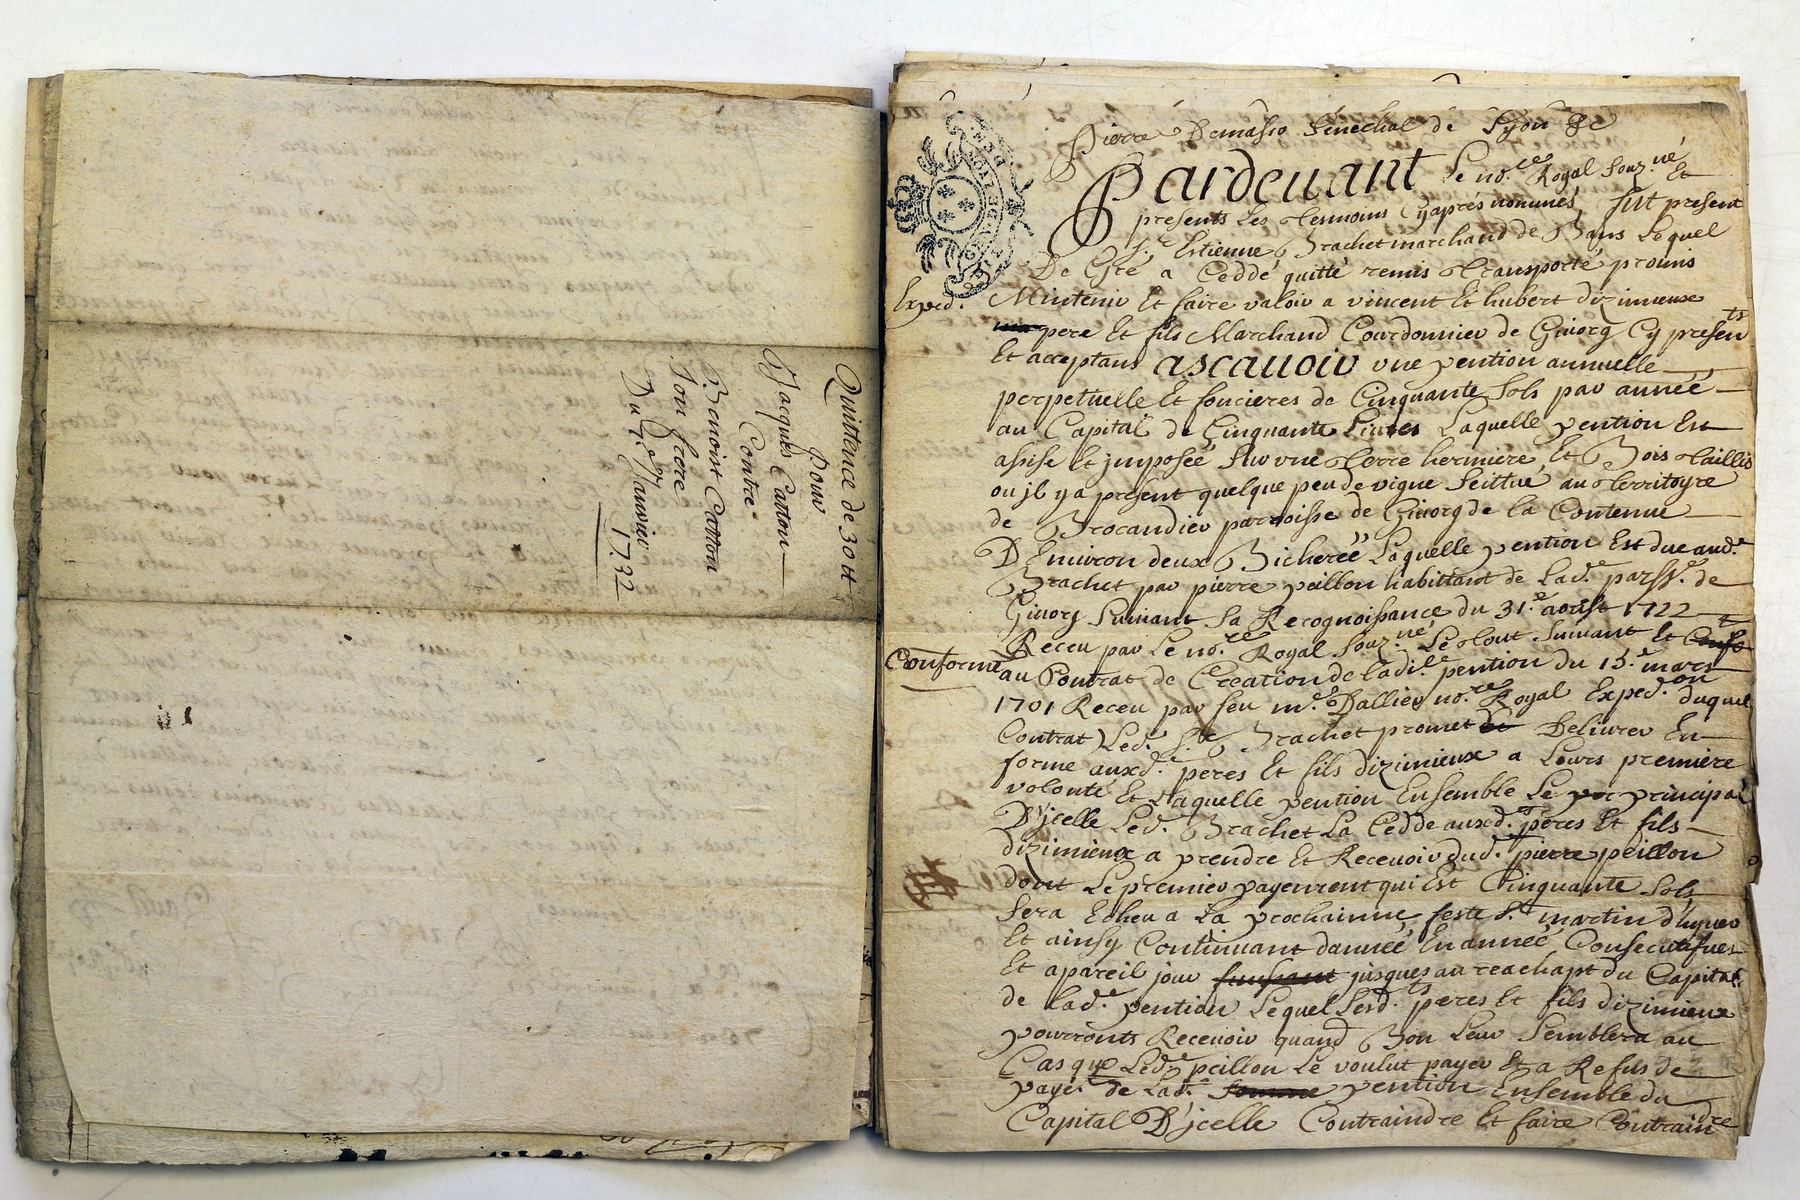 Quittence de 30 ₶
Pour
Jacques Catton
Contre
Benoist Catton
son frere
Du Janvier
1732
Pierre Demasso senechal de Lyon &c
Pardevant Le no.re Royal Souz.né Et
presents Les tesmoins Cyaprés nommés, fut present
s.r Estienne Brachet marchand de Bans Lequel
De Gré a Ceddé quitté remis et transporté promis
Exped.
Mintenir Et faire valoir a vincent Et hubert dizimieux
pere Et fils Marchand Courdonnier de Givorg Cy presents
Et acceptans ascavoir une pention annuelle
perpetuelle Et foncieres de Cinquante Sols par année
au Capital de Cinquante Livres Laquelle pention Est
assise Et jmposée sur une terre hermiere Et Bois taillis
ou jl y a present quelque peu de vigne Scittué au territoyre
de Brocandier parroisse de Givorg de la Contenue
D'Environ deux Bicherée Laquelle pention Est due aud.t
Brachet par pierre peillon habittant de Lad.e parss.e de
Givorg Suivant Sa Recognoissance du 31.e aoust 1722
Receu par Le no.re Royal Souz.né Le tout Suivant Et
Conforme
au Contrat de Creation de ladi.te pention du 15.e mars
1701 Receu par feu m.e Dallier no.re Royal Exped.on duquel
Contrat Led.t S.r Brachet promet de Delivrer En
forme auxd. peres Et fils dizimieux a Leurs premiere
volonté Et Laquelle pention Ensemble Le principal
D'jcelle Led.t Brachet La Cedde auxd.ts peres Et fils
dizimieux a prendre Et Recevoir dud.t pierre peillon
dont Le premier payement qui Est Cinquante Sols
Sera Echeu a La prochainne feste S.t martin d'hyver
Et ainsy Continuant dannée En année Consecutifues
Et apareil jour jusques au reachapt du Capital
de Lad.e pention Lequel Lesd.ts peres Et fils dizimieux
pourronts Recevoir quand Bon Leur Semblera au
Cas que Led.t peillon Le voulut payer Et a Refus de
payer de Lad.e somme pention Ensemble du
Capital D'jcelle Contraindre Et faire Contraindre